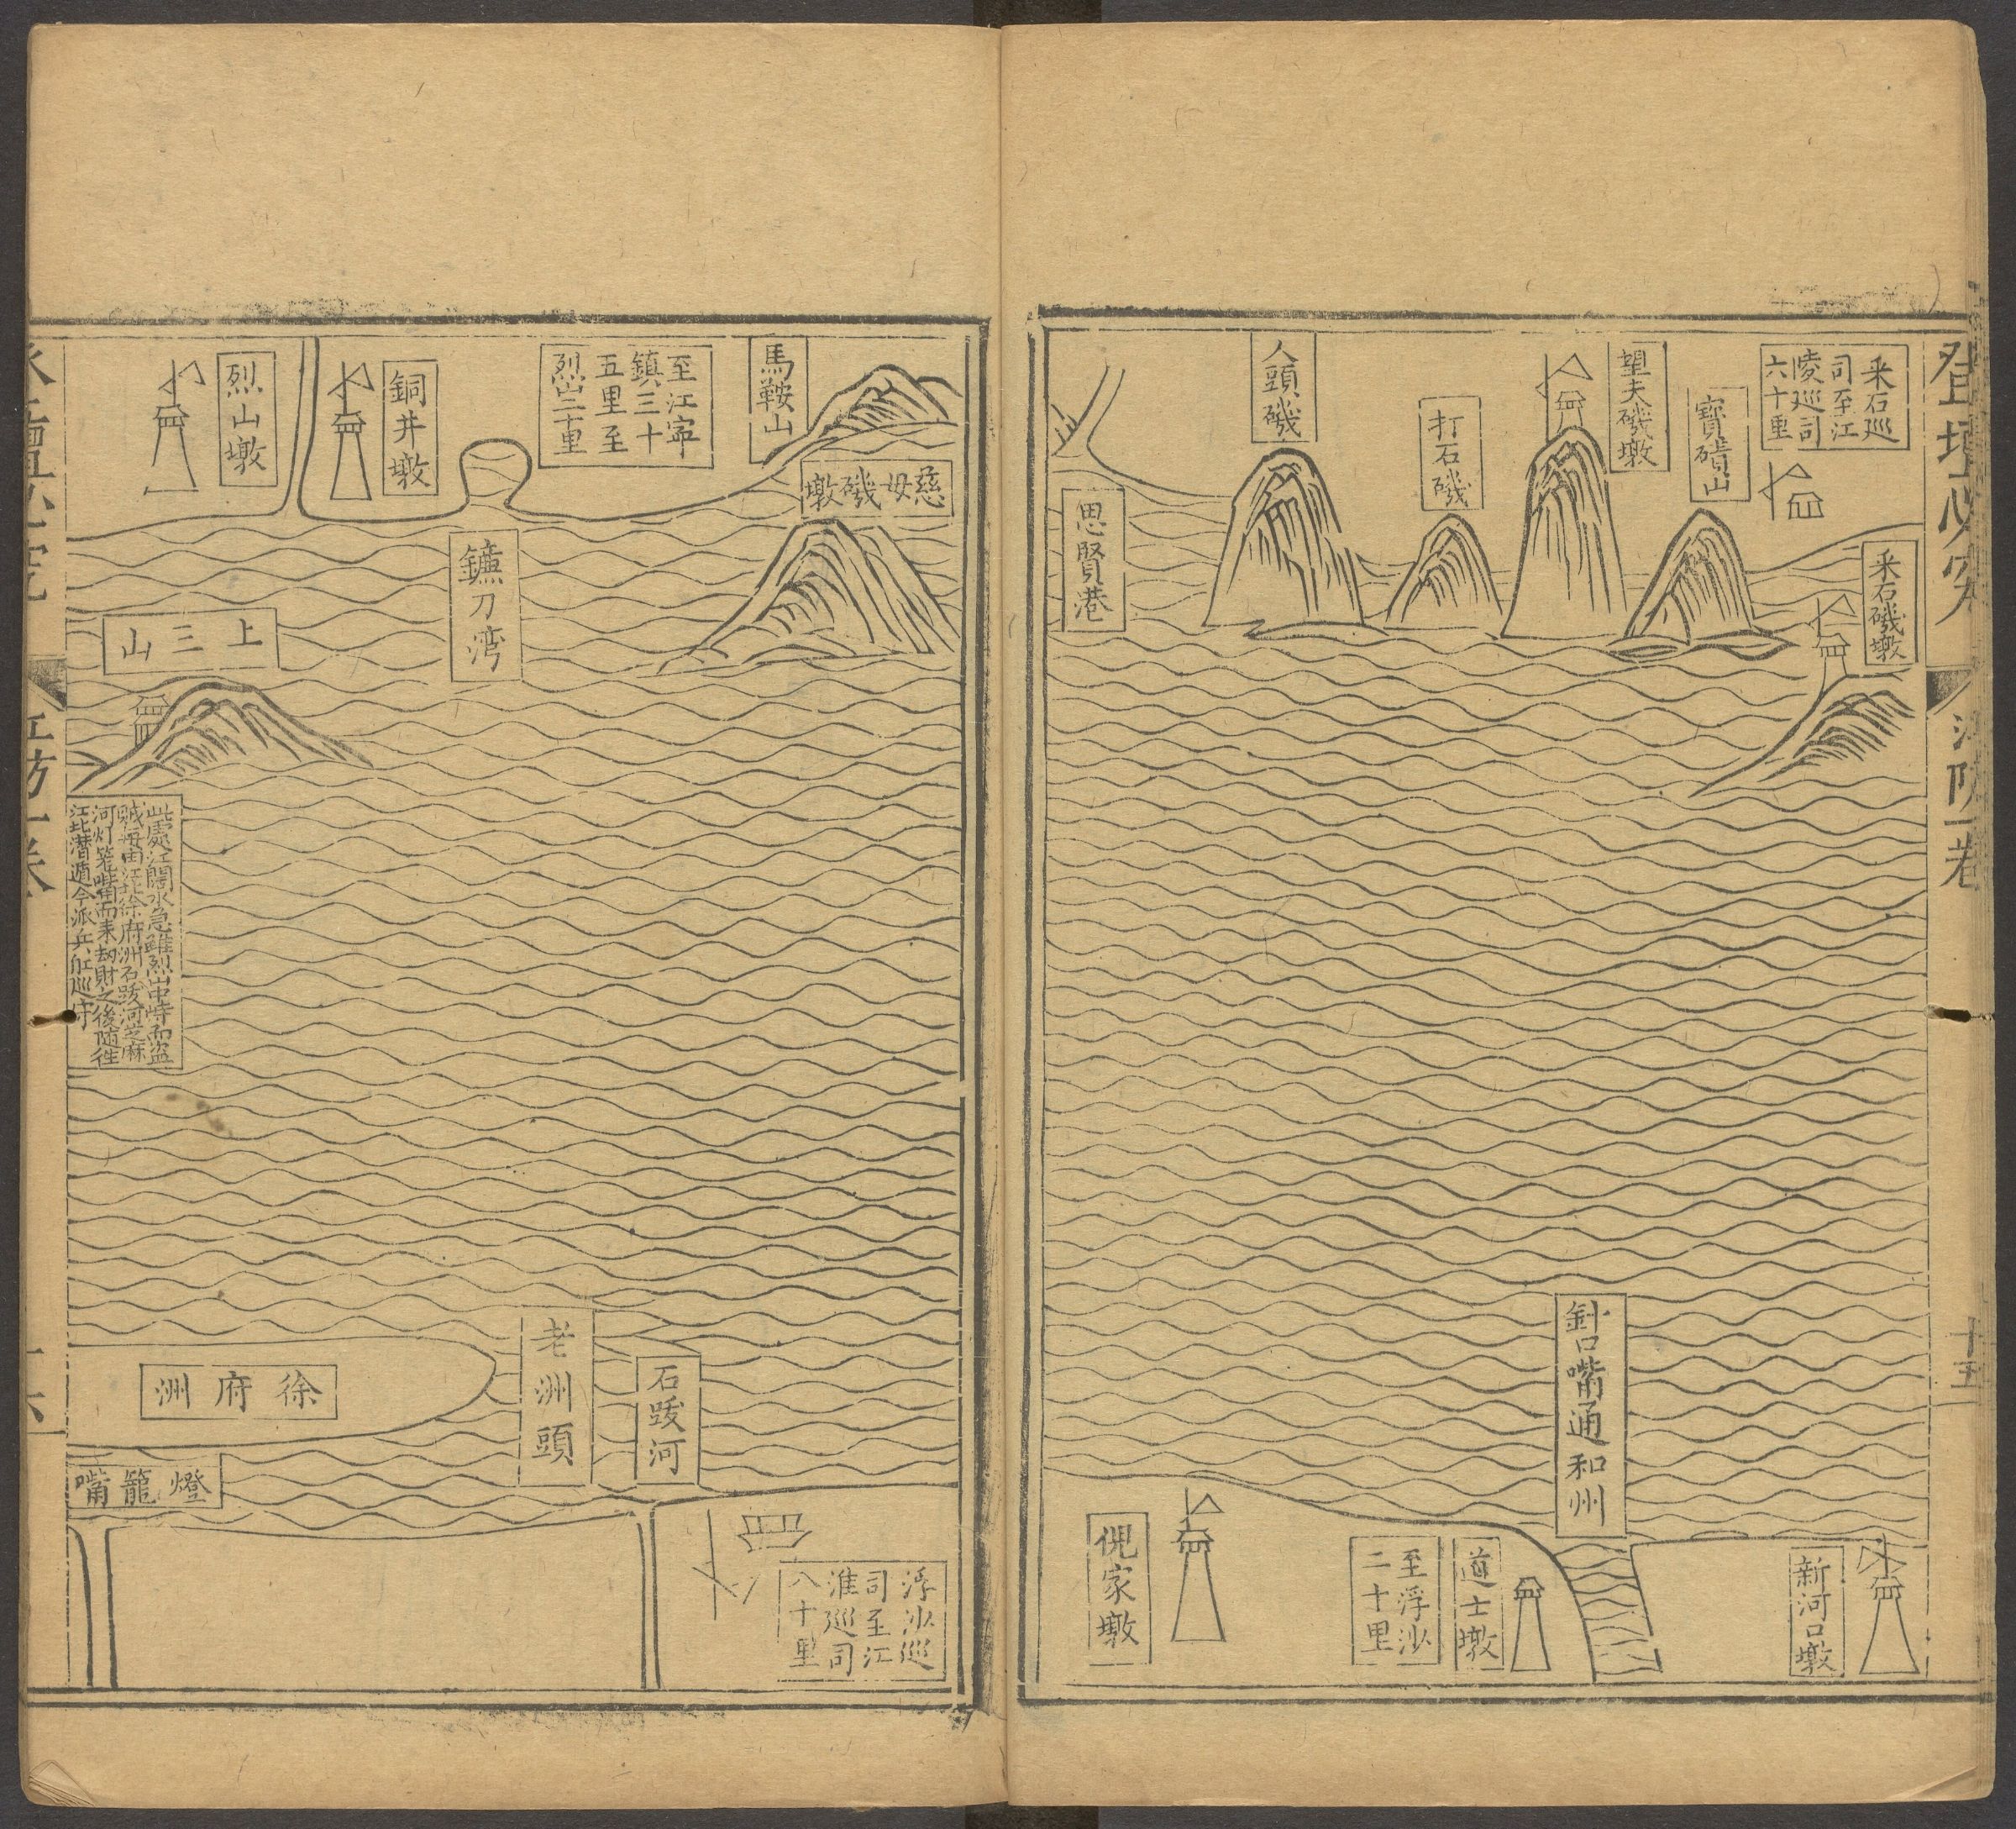 登壇必究
江防一卷
十五
采石巡
司至江
淩巡司
六十里
采石磯墩
寶磧山
望夫磯墩
打石磯
人頭磯
思賢港
新河口墩
針口嘴通和州
道士墩
至浮沙
二十里
倪家墩
馬鞍山
慈母磯墩
至江寧
鎮三十
五里至
烈山三十里
鐮刀湾
銅井墩
烈山墩
上三山
此處江闊水急雖烈山中峙而盗
賊每由江北徐府洲石跋河芝麻
河灯笼嘴而来刼財之後随徃
江北潜遁今派兵舡巡守
石跋河
老洲頭
徐府洲
燈籠嘴
浮沙巡
司至江
淮巡司
八十里